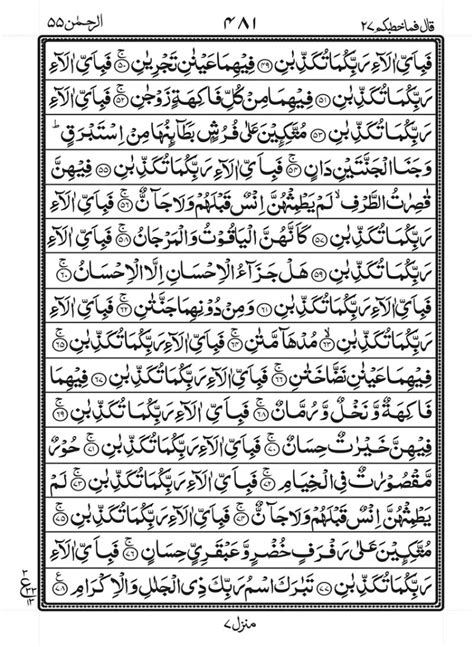 قال فماخطبکم ۲۷ ۴۸۱ الرحمٰن ۵۵
فَبِاَیِّ اٰلَآءِ رَبِّكُمَا تُكَذِّبٰنِ ﴿۴۹﴾ فِیْهِمَا عَیْنٰنِ تَجْرِیٰنِ ﴿۵۰﴾ۚ فَبِاَیِّ اٰلَآءِ
رَبِّكُمَا تُكَذِّبٰنِ ﴿۵۱﴾ فِیْهِمَا مِنْ كُلِّ فَاكِهَةٍ زَوْجٰنِ ﴿۵۲﴾ۚ فَبِاَیِّ اٰلَآءِ
رَبِّكُمَا تُكَذِّبٰنِ ﴿۵۳﴾ مُتَّكِـِٕیْنَ عَلٰی فُرُشٍۭ بَطَآىِٕنُهَا مِنْ اِسْتَبْرَقٍ ؕ
وَجَنَا الْجَنَّتَیْنِ دَانٍ ﴿۵۴﴾ۚ فَبِاَیِّ اٰلَآءِ رَبِّكُمَا تُكَذِّبٰنِ ﴿۵۵﴾ فِیْهِنَّ
قٰصِرٰتُ الطَّرْفِ ۙ لَمْ یَطْمِثْهُنَّ اِنْسٌ قَبْلَهُمْ وَلَا جَآنٌّ ﴿۵۶﴾ۚ فَبِاَیِّ اٰلَآءِ
رَبِّكُمَا تُكَذِّبٰنِ ﴿۵۷﴾ۚ كَاَنَّهُنَّ الْیَاقُوْتُ وَالْمَرْجَانُ ﴿۵۸﴾ۚ فَبِاَیِّ اٰلَآءِ
رَبِّكُمَا تُكَذِّبٰنِ ﴿۵۹﴾ هَلْ جَزَآءُ الْاِحْسَانِ اِلَّا الْاِحْسَانُ ﴿۶۰﴾ۚ
فَبِاَیِّ اٰلَآءِ رَبِّكُمَا تُكَذِّبٰنِ ﴿۶۱﴾ وَمِنْ دُوْنِهِمَا جَنَّتٰنِ ﴿۶۲﴾ۚ فَبِاَیِّ اٰلَآءِ
رَبِّكُمَا تُكَذِّبٰنِ ﴿۶۳﴾ۙ مُدْهَآمَّتٰنِ ﴿۶۴﴾ۚ فَبِاَیِّ اٰلَآءِ رَبِّكُمَا تُكَذِّبٰنِ ﴿۶۵﴾ۚ
فِیْهِمَا عَیْنٰنِ نَضَّاخَتٰنِ ﴿۶۶﴾ۚ فَبِاَیِّ اٰلَآءِ رَبِّكُمَا تُكَذِّبٰنِ ﴿۶۷﴾ فِیْهِمَا
فَاكِهَةٌ وَّنَخْلٌ وَّرُمَّانٌ ﴿۶۸﴾ۚ فَبِاَیِّ اٰلَآءِ رَبِّكُمَا تُكَذِّبٰنِ ﴿۶۹﴾ۚ
فِیْهِنَّ خَیْرٰتٌ حِسَانٌ ﴿۷۰﴾ۚ فَبِاَیِّ اٰلَآءِ رَبِّكُمَا تُكَذِّبٰنِ ﴿۷۱﴾ۚ حُوْرٌ
مَّقْصُوْرٰتٌ فِی الْخِیَامِ ﴿۷۲﴾ۚ فَبِاَیِّ اٰلَآءِ رَبِّكُمَا تُكَذِّبٰنِ ﴿۷۳﴾ۚ لَمْ
یَطْمِثْهُنَّ اِنْسٌ قَبْلَهُمْ وَلَا جَآنٌّ ﴿۷۴﴾ۚ فَبِاَیِّ اٰلَآءِ رَبِّكُمَا تُكَذِّبٰنِ ﴿۷۵﴾ۚ
مُتَّكِـِٕیْنَ عَلٰی رَفْرَفٍ خُضْرٍ وَّعَبْقَرِیٍّ حِسَانٍ ﴿۷۶﴾ۚ فَبِاَیِّ اٰلَآءِ
رَبِّكُمَا تُكَذِّبٰنِ ﴿۷۷﴾ تَبٰرَكَ اسْمُ رَبِّكَ ذِی الْجَلٰلِ وَالْاِكْرَامِ ﴿۷۸﴾
۳ ع ۳۳ ۱۳
منزل ۷